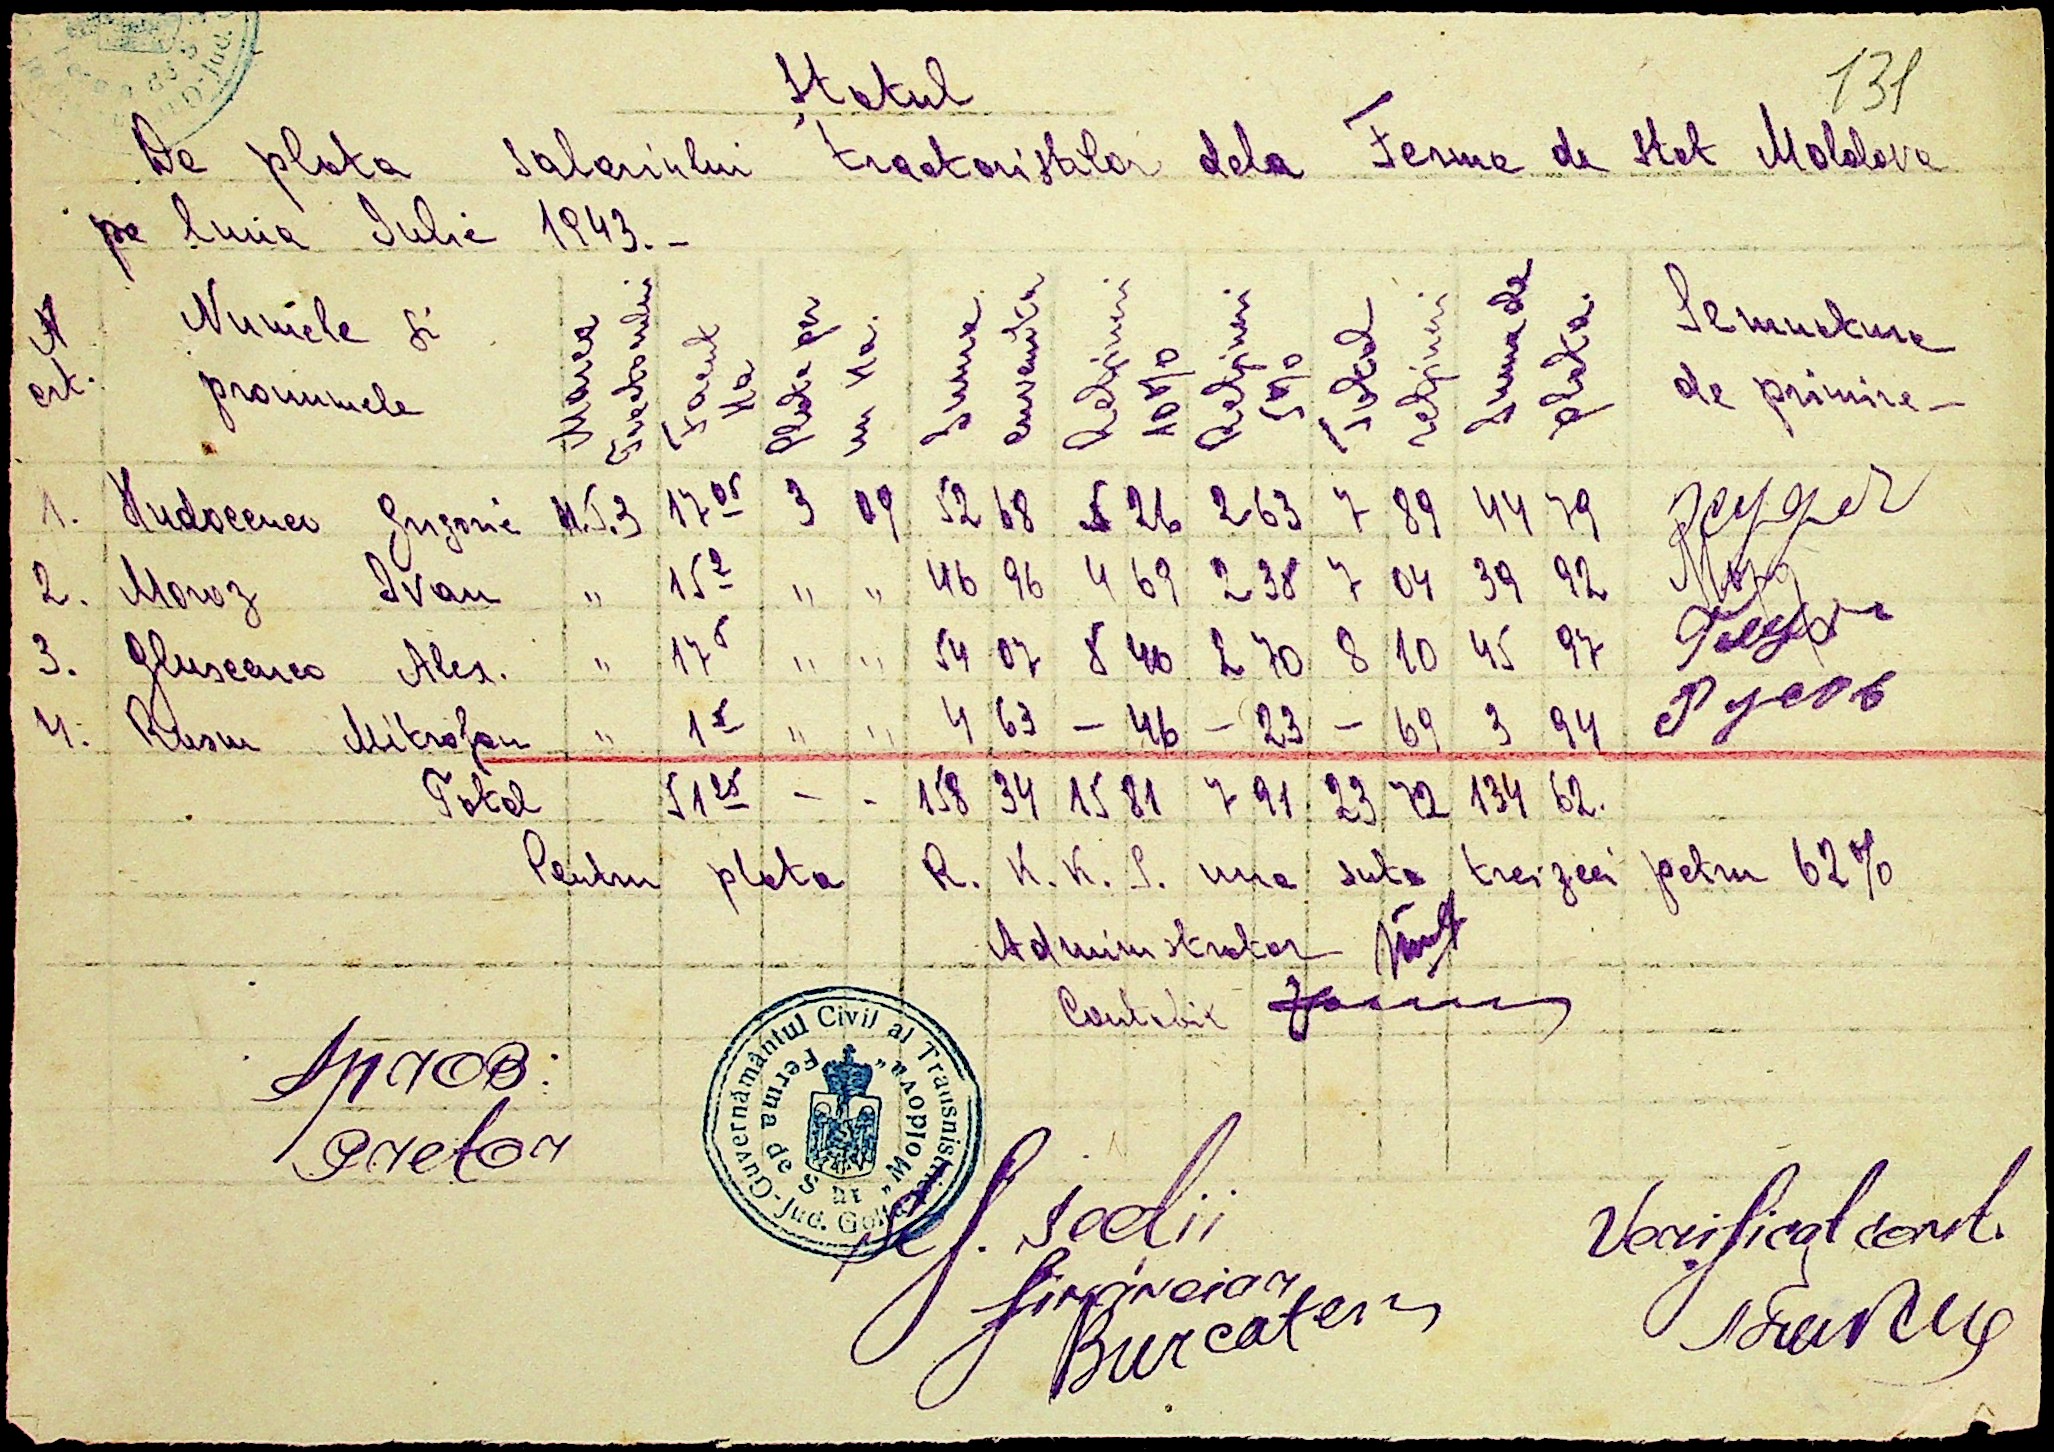 131
Statul
De plata salariului tractoriștilor dela Ferma de Stat Moldova
pe luna Iulie 1943.-
N crt. Numele și pronumele Marca Tractorului Facut Ha Plata per un Ha. Suma cuvenita Rețineri 10% Rețineri 5% Total rețineri Suma de plata. Semnatura de primire-
1. Hudocenco Grigorie H.S.3 17 05 3 09 52 68 5 26 2 63 7 89 44 79
2. Moroz Ivan " 15 2 " " 46 96 4 69 2 35 7 04 39 92 Мороз
3. Gluscenco Alex. " 17 5 " " 54 07 5 40 2 70 8 10 45 97
4. Rusu Mitrofan " 1 5 " " 4 63 - 46 - 23 - 69 3 94 Русов
Total 51 25 - - 158 34 15 81 7 91 23 72 134 62.
Pentru plata R. K. K. S. una suta treizeci patru 62%
Administrator
Contabil
Guvernământul Civil al Transnistriei
Jud. Golta
Ferma de Stat "Moldova"
Aprob:
Pretor
Șef. sedii
financiar
Burcatern
Verificat cont.